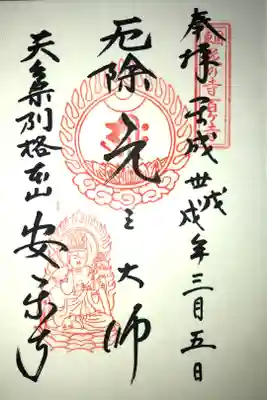 奉拝 平成丗戊戌年三月五日
厄除 元三大師
天台宗別格本山 安楽寺